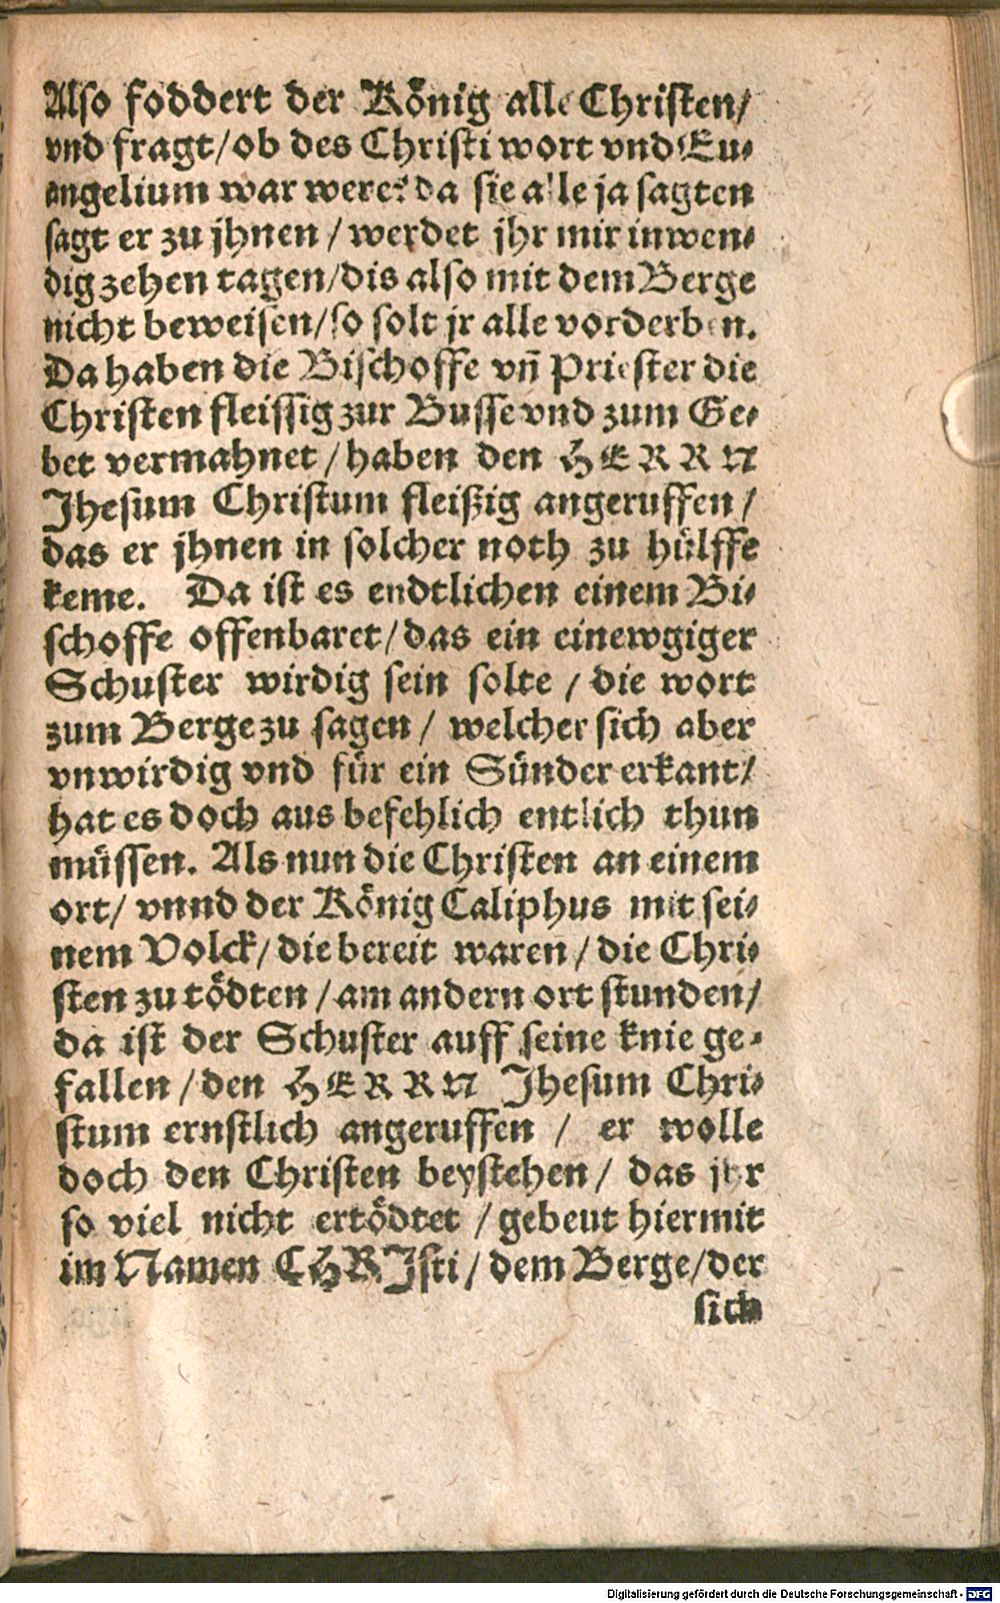 Also foddert der König alle Christen/
vnd fragt/ob des Christi wort vnd Eu-
angelium war were? da sie alle ja sagten
sagt er zu jhnen / werdet jhr mir inwen-
dig zehen tagen/dis also mit dem Berge
nicht beweisen/so solt jr alle vorderben.
Da haben die Bischoffe vñ Priester die
Christen fleissig zur Busse vnd zum Ge-
bet vermahnet / haben den HERRN
Jhesum Christum fleißig angeruffen /
das er jhnen in solcher noth zu hülffe
keme. Da ist es endtlichen einem Bi-
schoffe offenbaret/das ein einewgiger
Schuster wirdig sein solte / die wort
zum Berge zu sagen / welcher sich aber
vnwirdig vnd für ein Sünder erkant/
hat es doch aus befehlich entlich thun
müssen. Als nun die Christen an einem
ort/ vnnd der König Caliphus mit sei-
nem Volck/ die bereit waren / die Chri-
sten zu tödten / am andern ort stunden/
da ist der Schuster auff seine knie ge-
fallen / den HERRN Jhesum Chri-
stum ernstlich angeruffen / er wolle
doch den Christen beystehen / das jhr
so viel nicht ertödtet / gebeut hiermit
im Namen CHRJsti / dem Berge/der
sich
Digitalisierung gefördert durch die Deutsche Forschungsgemeinschaft - DFG